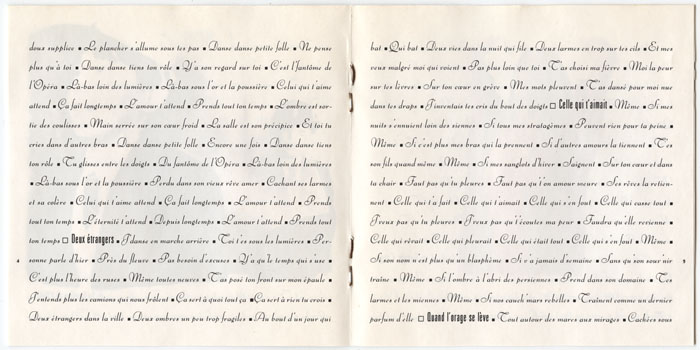 doux supplice ■ Le plancher s'allume sous tes pas ■ Danse danse petite folle ■ Ne pense
plus qu'à toi ■ Danse danse tiens ton rôle ■ Y'a son regard sur toi ■ C'est l'fantôme de
l'Opéra ■ Là-bas loin des lumières ■ Là-bas sous l'or et la poussière ■ Celui qui t'aime
attend ■ Ça fait longtemps ■ L'amour t'attend ■ Prends tout ton temps ■ L'ombre est sor-
tie des coulisses ■ Main serrée sur son cœur froid ■ La salle est son précipice ■ Et toi tu
cries dans d'autres bras ■ Danse danse petite folle ■ Encore une fois ■ Danse danse tiens
ton rôle ■ Tu glisses entre les doigts ■ Du fantôme de l'Opéra ■ Là-bas loin des lumières
■ Là-bas sous l'or et la poussière ■ Perdu dans son vieux rêve amer ■ Cachant ses larmes
et sa colère ■ Celui qui t'aime attend ■ Ça fait longtemps ■ L'amour t'attend ■ Prends
tout ton temps ■ L'éternité t'attend ■ Depuis longtemps ■ L'amour t'attend ■ Prends tout
ton temps □ Deux étrangers ■ J'danse en marche arrière ■ Toi t'es sous les lumières ■ Per-
sonne parle d'hier ■ Près du fleuve ■ Pas besoin d'excuses ■ Y'a qu'le temps qui s'use ■
C'est plus l'heure des ruses ■ Même toutes neuves ■ T'as posé ton front sur mon épaule ■
J'entends plus les camions qui nous frôlent ■ Ça sert à quoi tout ça ■ Ça sert à rien tu crois ■
Deux étrangers dans la ville ■ Deux ombres un peu trop fragiles ■ Au bout d'un jour qui
4
bat ■ Qui bat ■ Deux vies dans la nuit qui file ■ Deux larmes en trop sur tes cils ■ Et mes
yeux malgré moi qui voient ■ Pas plus loin que toi ■ T'as choisi ma fièvre ■ Moi la peur
sur tes lèvres ■ Sur ton cœur en grève ■ Mes mots pleuvent ■ T'as dansé pour moi nue
dans tes draps ■ J'inventais tes cris du bout des doigts □ Celle qui t'aimait ■ Même ■ Si mes
nuits s'ennuient loin des siennes ■ Si tous mes stratagèmes ■ Peuvent rien pour ta peine ■
Même ■ Si c'est plus mes bras qui la prennent ■ Si d'autres amours la tiennent ■ T'es
son fils quand même ■ Même ■ Si mes sanglots d'hiver ■ Saignent ■ Sur ton cœur et dans
ta chair ■ Faut pas qu'tu pleures ■ Faut pas qu'i'on amour meure ■ Ses rêves la retien-
nent ■ Celle qui t'a fait ■ Celle qui t'aimait ■ Celle qui s'en fout ■ Celle qui casse tout ■
J'veux pas qu'tu pleures ■ J'veux pas qu't'écoutes ma peur ■ Faudra qu'elle revienne ■
Celle qui rêvait ■ Celle qui pleurait ■ Celle qui était tout ■ Celle qui s'en fout ■ Même ■
Si son nom n'est plus qu'un blasphème ■ Si y'a jamais d'semaine ■ Sans qu'son sour'nir
traîne ■ Même ■ Si l'ombre à l'abri des persiennes ■ Prend dans son domaine ■ Tes
larmes et les miennes ■ Même ■ Si nos cauch'mars rebelles ■ Traînent comme un dernier
parfum d'elle □ Quand l'orage se lève ■ Tout autour des mares aux mirages ■ Cachées sous
5